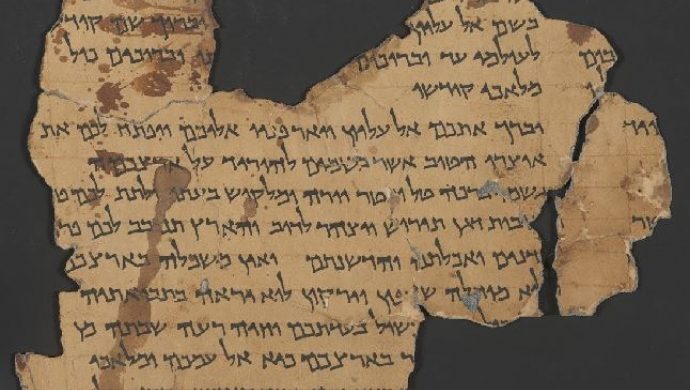 בשם אל עליון וברוך שם קוד
לעולמי עד וברוכים וברוכים כול
מלאכי קודשו
יברך אתכם אל עליון ויאר פניו אליכם ויפתח לכם את
אוצרו הטוב אשר בשמים להוריד על ארצכמה
גשמי ברכה טל ומטר יורה ומלקוש בעתו ולתת לכם
בות דגן תירוש ויצהר לרוב והארץ תנובב לכם פרי
דנים ואכלתם והדשנתם ואין משכלה בארצכם
לא מוחלה שדפון וירקון לוא יראה בתבואתיה
שול בעדתכם וחיה רעה שבתה מן
ר בארצכם כיא אל עמכם ומלאכי